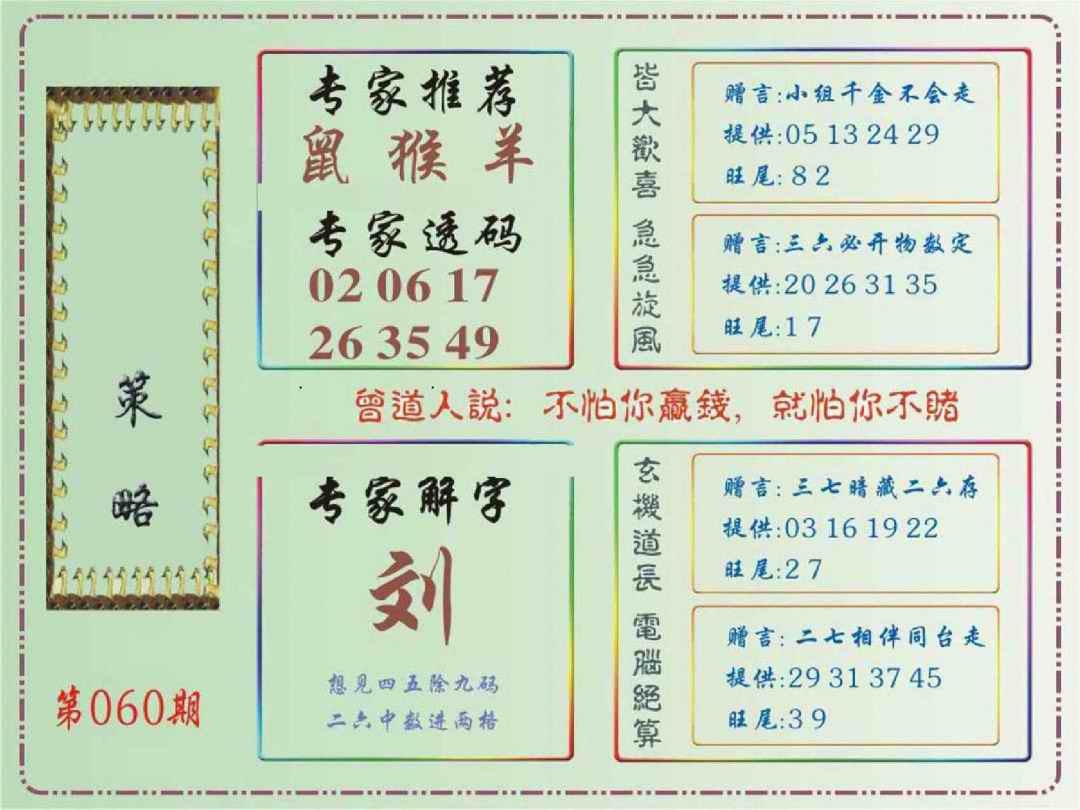 策略
第060期
专家推荐
鼠 猴 羊
专家透码
02 06 17
26 35 49
皆大歡喜
赠言:小组千金不会走
提供:05 13 24 29
旺尾: 8 2
急急旋風
赠言:三六必开物数定
提供:20 26 31 35
旺尾:1 7
曾道人説: 不怕你贏錢, 就怕你不賭
专家解字
刘
想见四五除九码
二六中数进两格
玄機道長
赠言: 三七暗藏二六存
提供:03 16 19 22
旺尾:2 7
電腦絕算
赠言: 二七相伴同台走
提供:29 31 37 45
旺尾:3 9